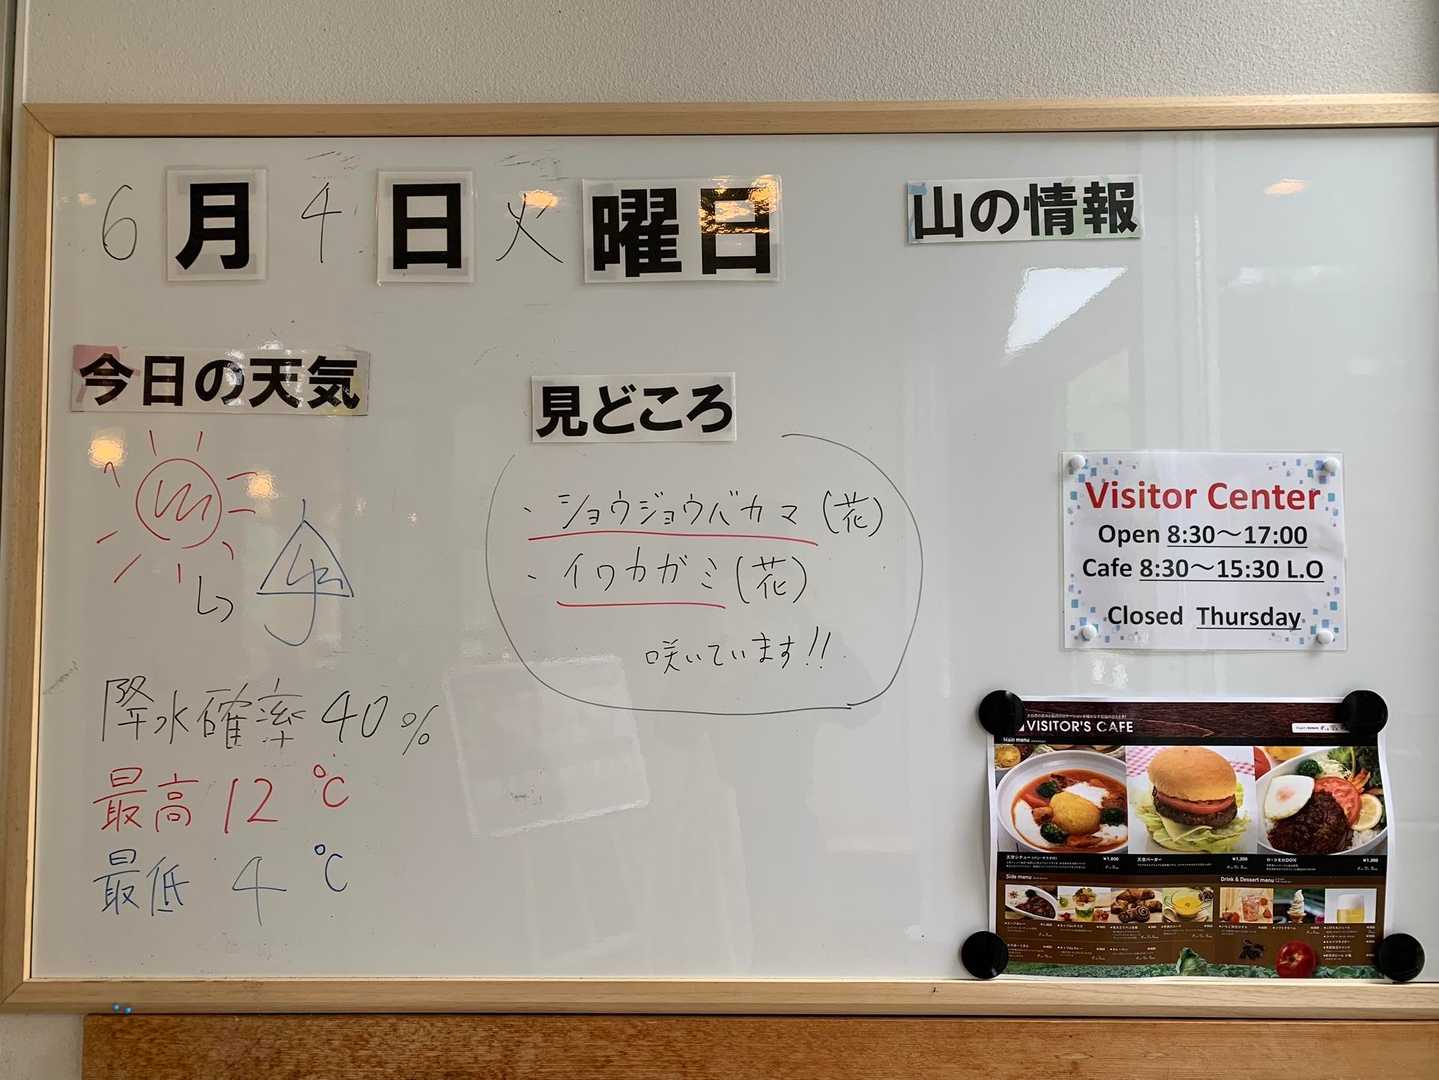 6月4日火曜日
山の情報
今日の天気
見どころ
・ショウジョウバカマ(花)
・イワカガミ(花)
咲いています!!
降水確率40%
最高12℃
最低4℃
Visitor Center
Open 8:30～17:00
Cafe 8:30～15:30 L.O
Closed Thursday
VISITOR'S CAFE
Main menu
Side menu
Drink & Dessert menu